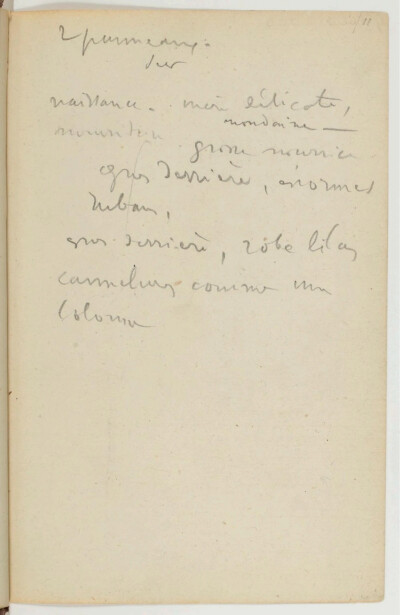 2 panneaux.
sur
naissance. mère délicate,
mondaine —
grosse nourrice
gros derrière, énormes
rubans,
gros derrière, robe lilas
cannelures comme une
colonne
11